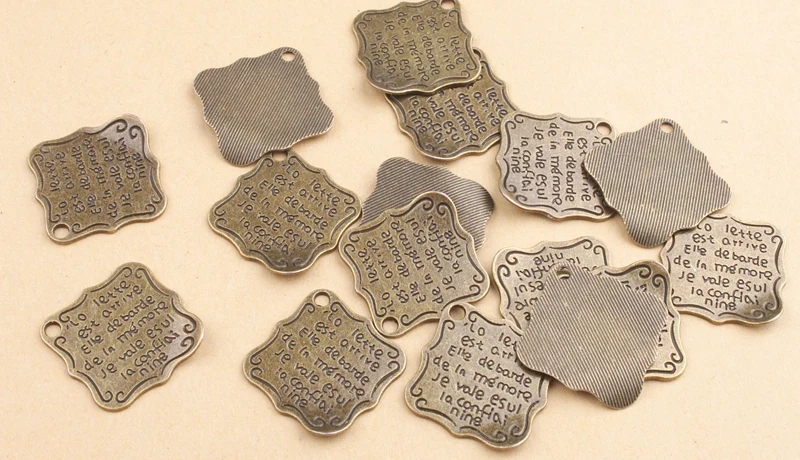 Lo lette
est arrive
Elle debarde
de in mémore
Je vale esul
la conflai
nine